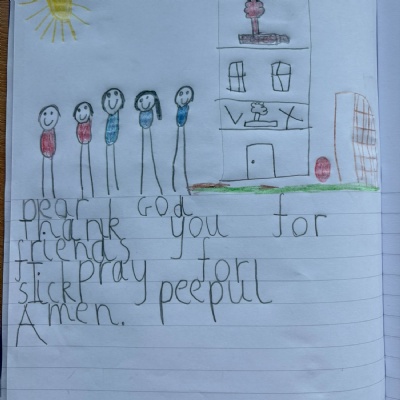 Dear God
thank you for
friends.
I pray for
sick peepul
Amen.